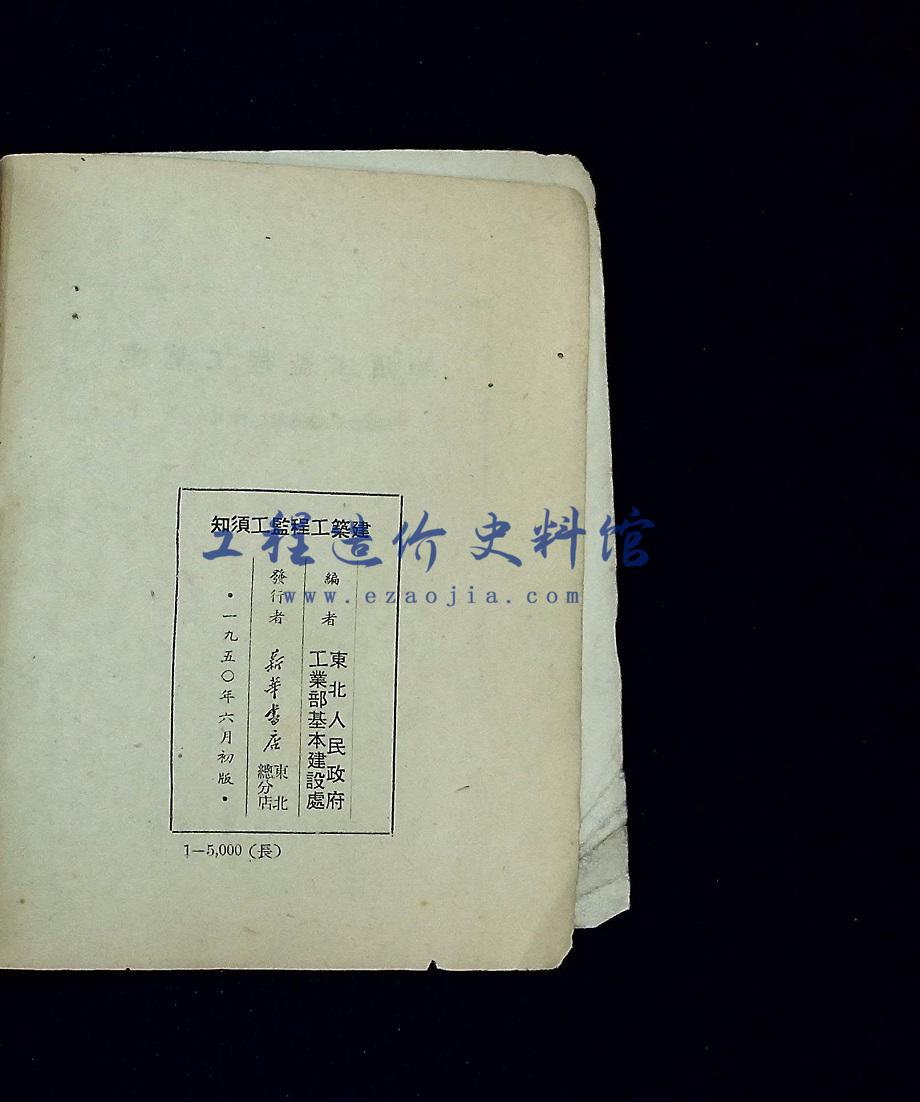 建築工程監工須知
編者 東北人民政府
工業部基本建設處
發行者 新華書店 東北
總分店
•一九五〇年六月初版•
1—5,000（長）
工程造价史料馆
www.ezaojia.com